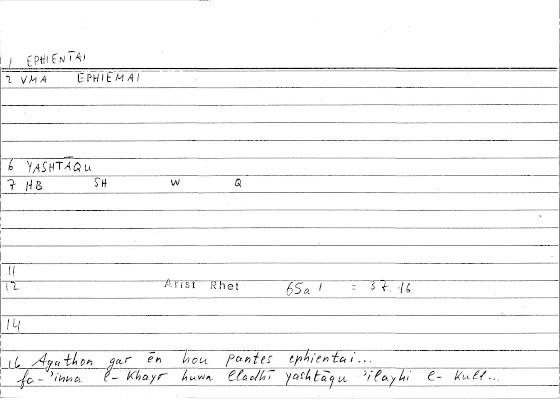 1 EPHIENTAI
2 VMA EPHIEMAI
6 YASHTĀQU
7 HB SH W Q
11
12 Arist Rhet 65a1 = 37.16
14
16 Agathon gar ēn hou pantes ephientai...
fa-'inna l-khayr huwa lladhī yashtāqu 'ilayhi l-kull...